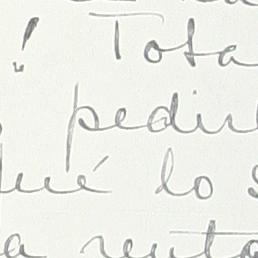 ! Tosa
pedir
ué lo s
a renta